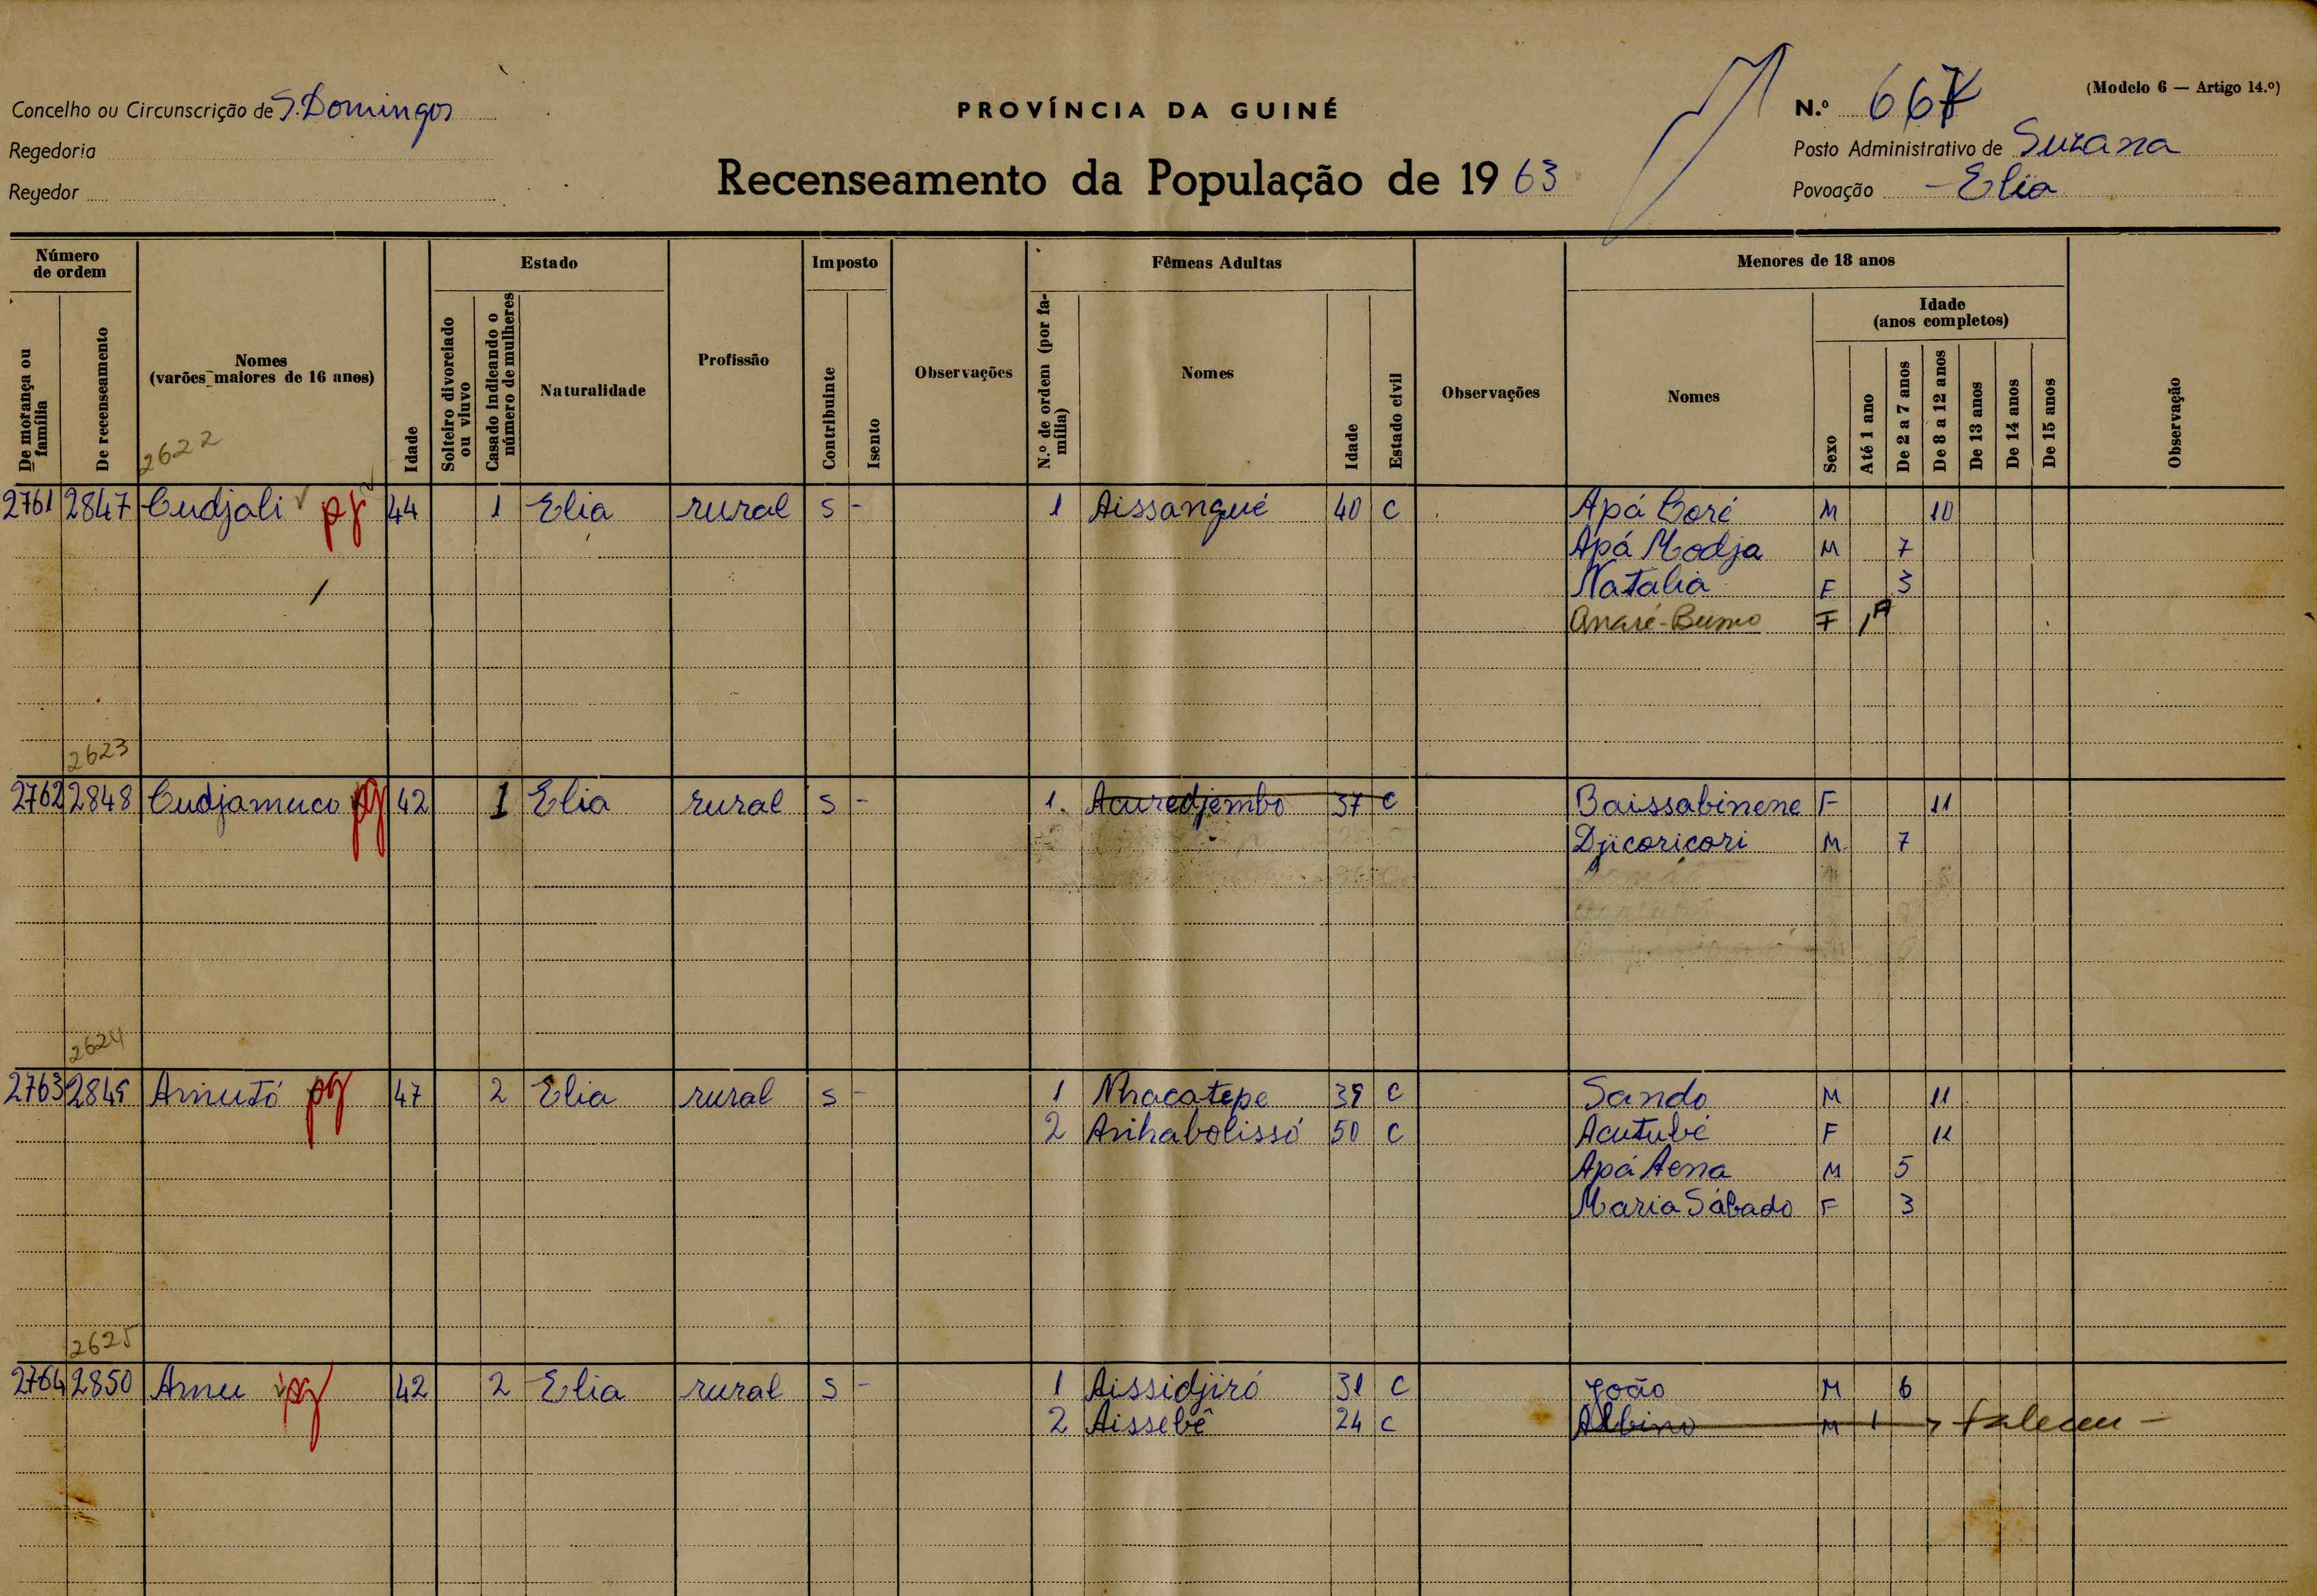 Concelho ou Circunscrição de S. Domingos
Regedoria
Regedor
PROVÍNCIA DA GUINÉ
Recenseamento da População de 1963
(Modelo 6 — Artigo 14.º)
N.º 667
Posto Administrativo de Suzana
Povoação Elia
Número de ordem
De morança ou família
De recenseamento
Nomes (varões maiores de 16 anos)
Idade
Estado
Solteiro divorciado ou viuvo
Casado indicando o número de mulheres
Naturalidade
Profissão
Imposto
Contribuinte
Isento
Observações
Fêmeas Adultas
N.º de ordem (por família)
Nomes
Idade
Estado civil
Observações
Menores de 18 anos
Nomes
Sexo
Idade (anos completos)
Até 1 ano
De 2 a 7 anos
De 8 a 12 anos
De 13 anos
De 14 anos
De 15 anos
Observação
2622
2761 2847 Cudjali pg 44 1 Elia rural s - 1 Aissangué 40 C Apá Coré M 10
Apá Modja M 7
Natalia F 3
F
2623
2762 2848 Cudjamuco pg 42 1 Elia rural s - 1 Acuredjembo 37 C Baissabinene F 11
Djicoricori M 7
2624
2763 2849 Amutó pg 47 2 Elia rural s - 1 Nhacatepe 39 C Sando M 11
2 Anhabolissó 50 C Acutubé F 12
Apá Aena M 5
Maria Sábado F 3
2625
2764 2850 Amu pg 42 2 Elia rural s - 1 Aissidjiró 31 C João M 6
2 Aissebê 24 C Albino M 1 faleceu -